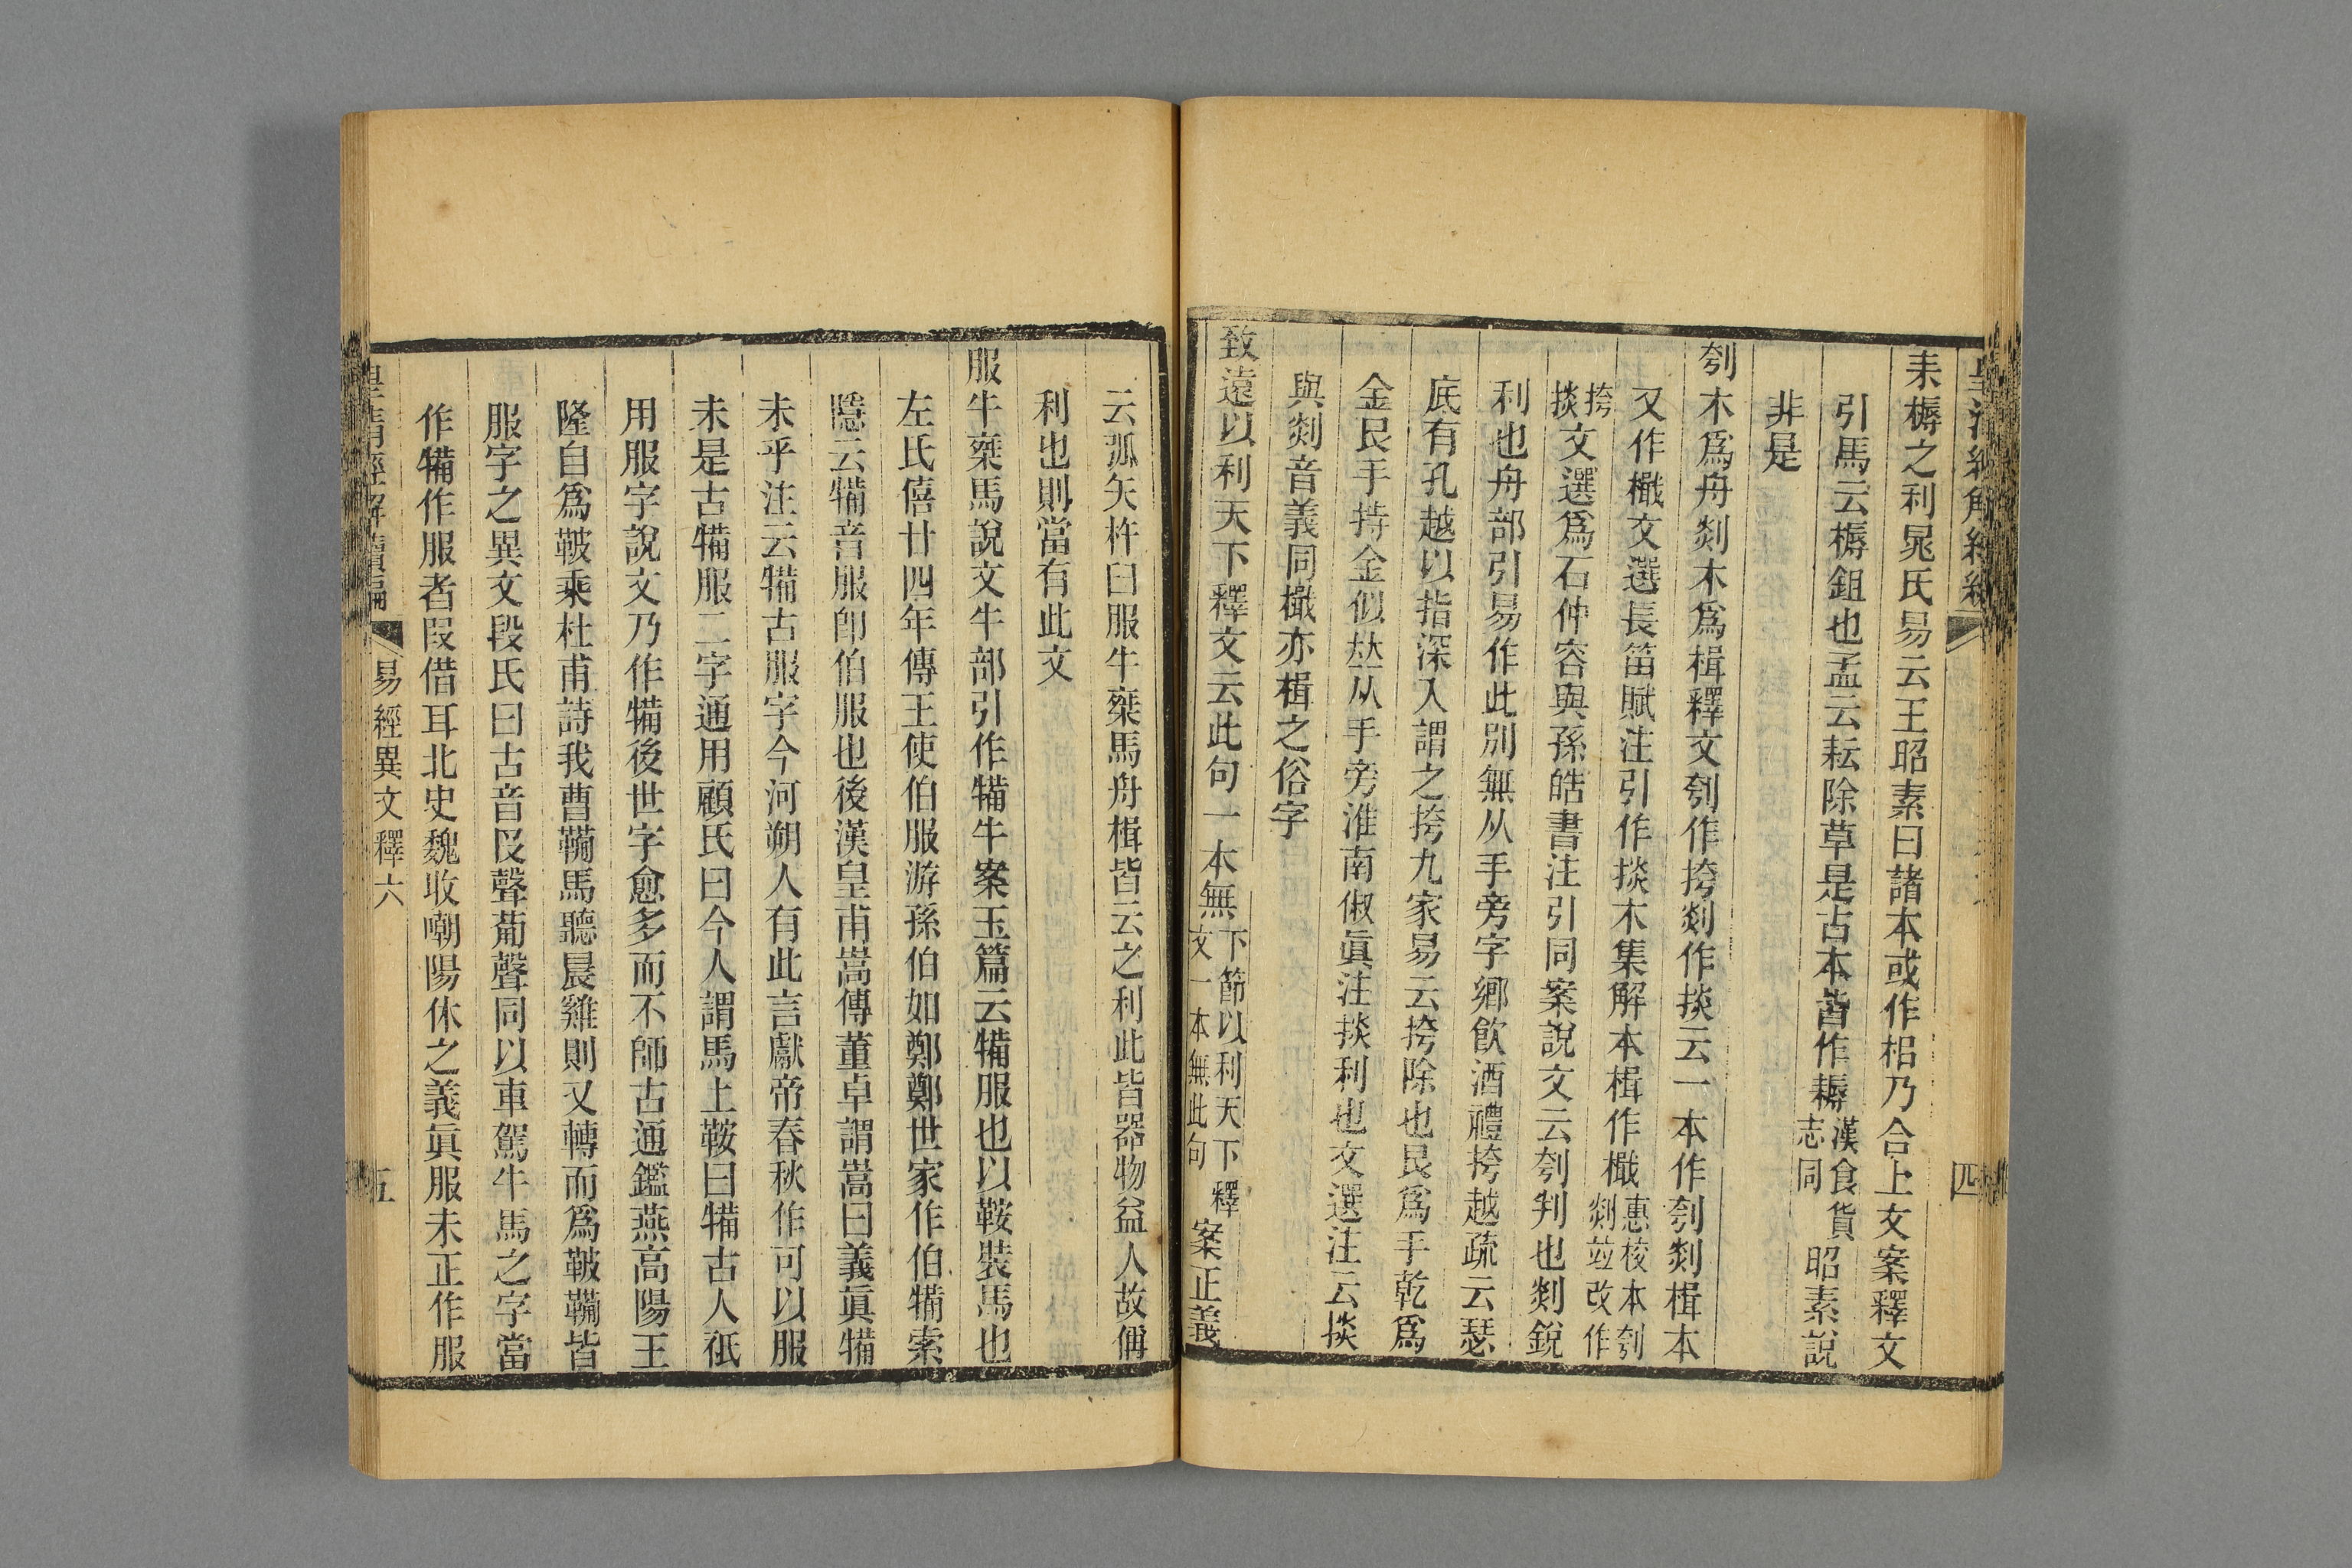 耒耨之利晁氏易云王昭素曰諸本或作梠乃合上文案釋文
引馬云耨鉏也孟云耘除草是古本皆作耨漢食貨志同昭素說
非是
刳木爲舟剡木爲楫釋文刳作挎剡作掞云一本作刳剡楫本
又作檝文選長笛賦注引作掞木集解本楫作檝惠校本刳剡竝改作
挎掞文選爲石仲容與孫皓書注引同案說文云刳判也剡銳
利也舟部引易作此別無从手旁字鄉飮酒禮挎越疏云瑟
底有孔越以指深入謂之挎九家易云挎除也艮爲手乾爲
金艮手持金似並从手旁淮南俶眞注掞利也文選注云掞
與剡音義同檝亦楫之俗字
致遠以利天下釋文云此句一本無下節以利天下釋文一本無此句案正義
云弧矢杵臼服牛椉馬舟楫皆云之利此皆器物益人故偁
利也則當有此文
服牛椉馬說文牛部引作犕牛案玉篇云犕服也以鞍裝馬也
左氏僖廿四年傳王使伯服游孫伯如鄭鄭世家作伯犕索
隱云犕音服卽伯服也後漢皇甫嵩傳董卓謂嵩曰義眞犕
未乎注云犕古服字今河朔人有此言獻帝春秋作可以服
未是古犕服二字通用顧氏曰今人謂馬上鞍曰犕古人祇
用服字說文乃作犕後世字愈多而不師古通鑑燕高陽王
隆自爲鞁乘杜甫詩我曹鞴馬聽晨雞則又轉而爲鞁鞴皆
服字之異文段氏曰古音𠬝聲𤰈聲同以車駕牛馬之字當
作犕作服者叚借耳北史魏收嘲陽休之義眞服未正作服
皇淸經解續編
易經異文釋六
五
四